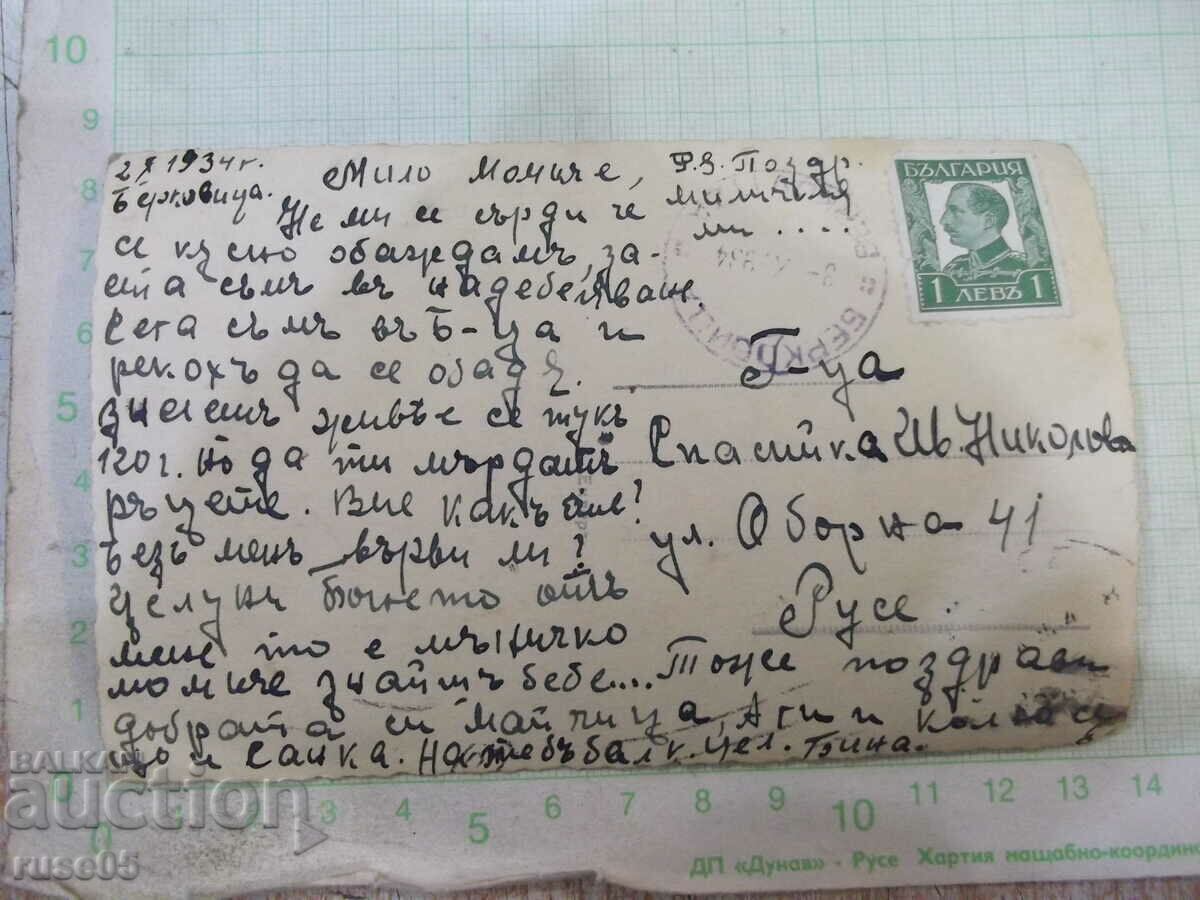 2 X 1934 г.
Берковица.
Мило Момиче,
Не ми се сърди че
се късно обаждамъ, за-
сега съмъ въ надебеляване.
Сега съмъ въ Б-ца и
рекохъ да се обадя.
живѣе се тукъ
120 г. Но да ти мърдатъ
ръцете. Вие какъ сте?
Безъ менъ върви ли?
Целуни бочето отъ
мене то е мъничко
момиче знаймъ бебе.... Тоже поздрави
добрата си майчица, Аги и
що и Сашка. На тебъ балк. цел. Гина.
P.S. Поздр.
миличкия
ми ....
БЪЛГАРИЯ
1 ЛЕВЪ 1
БЕРКОВИЦА
Г-ца
Спасийка Ив. Николова
ул. Оборна 41
Русе.
10
9
8
7
6
5
4
3
2
1
0
0
1
2
3
4
5
6
7
8
9
10
11
12
13
14
ДП «Дунав» - Русе Хартия мащабно-координ
BALKAN
auction
ruse05